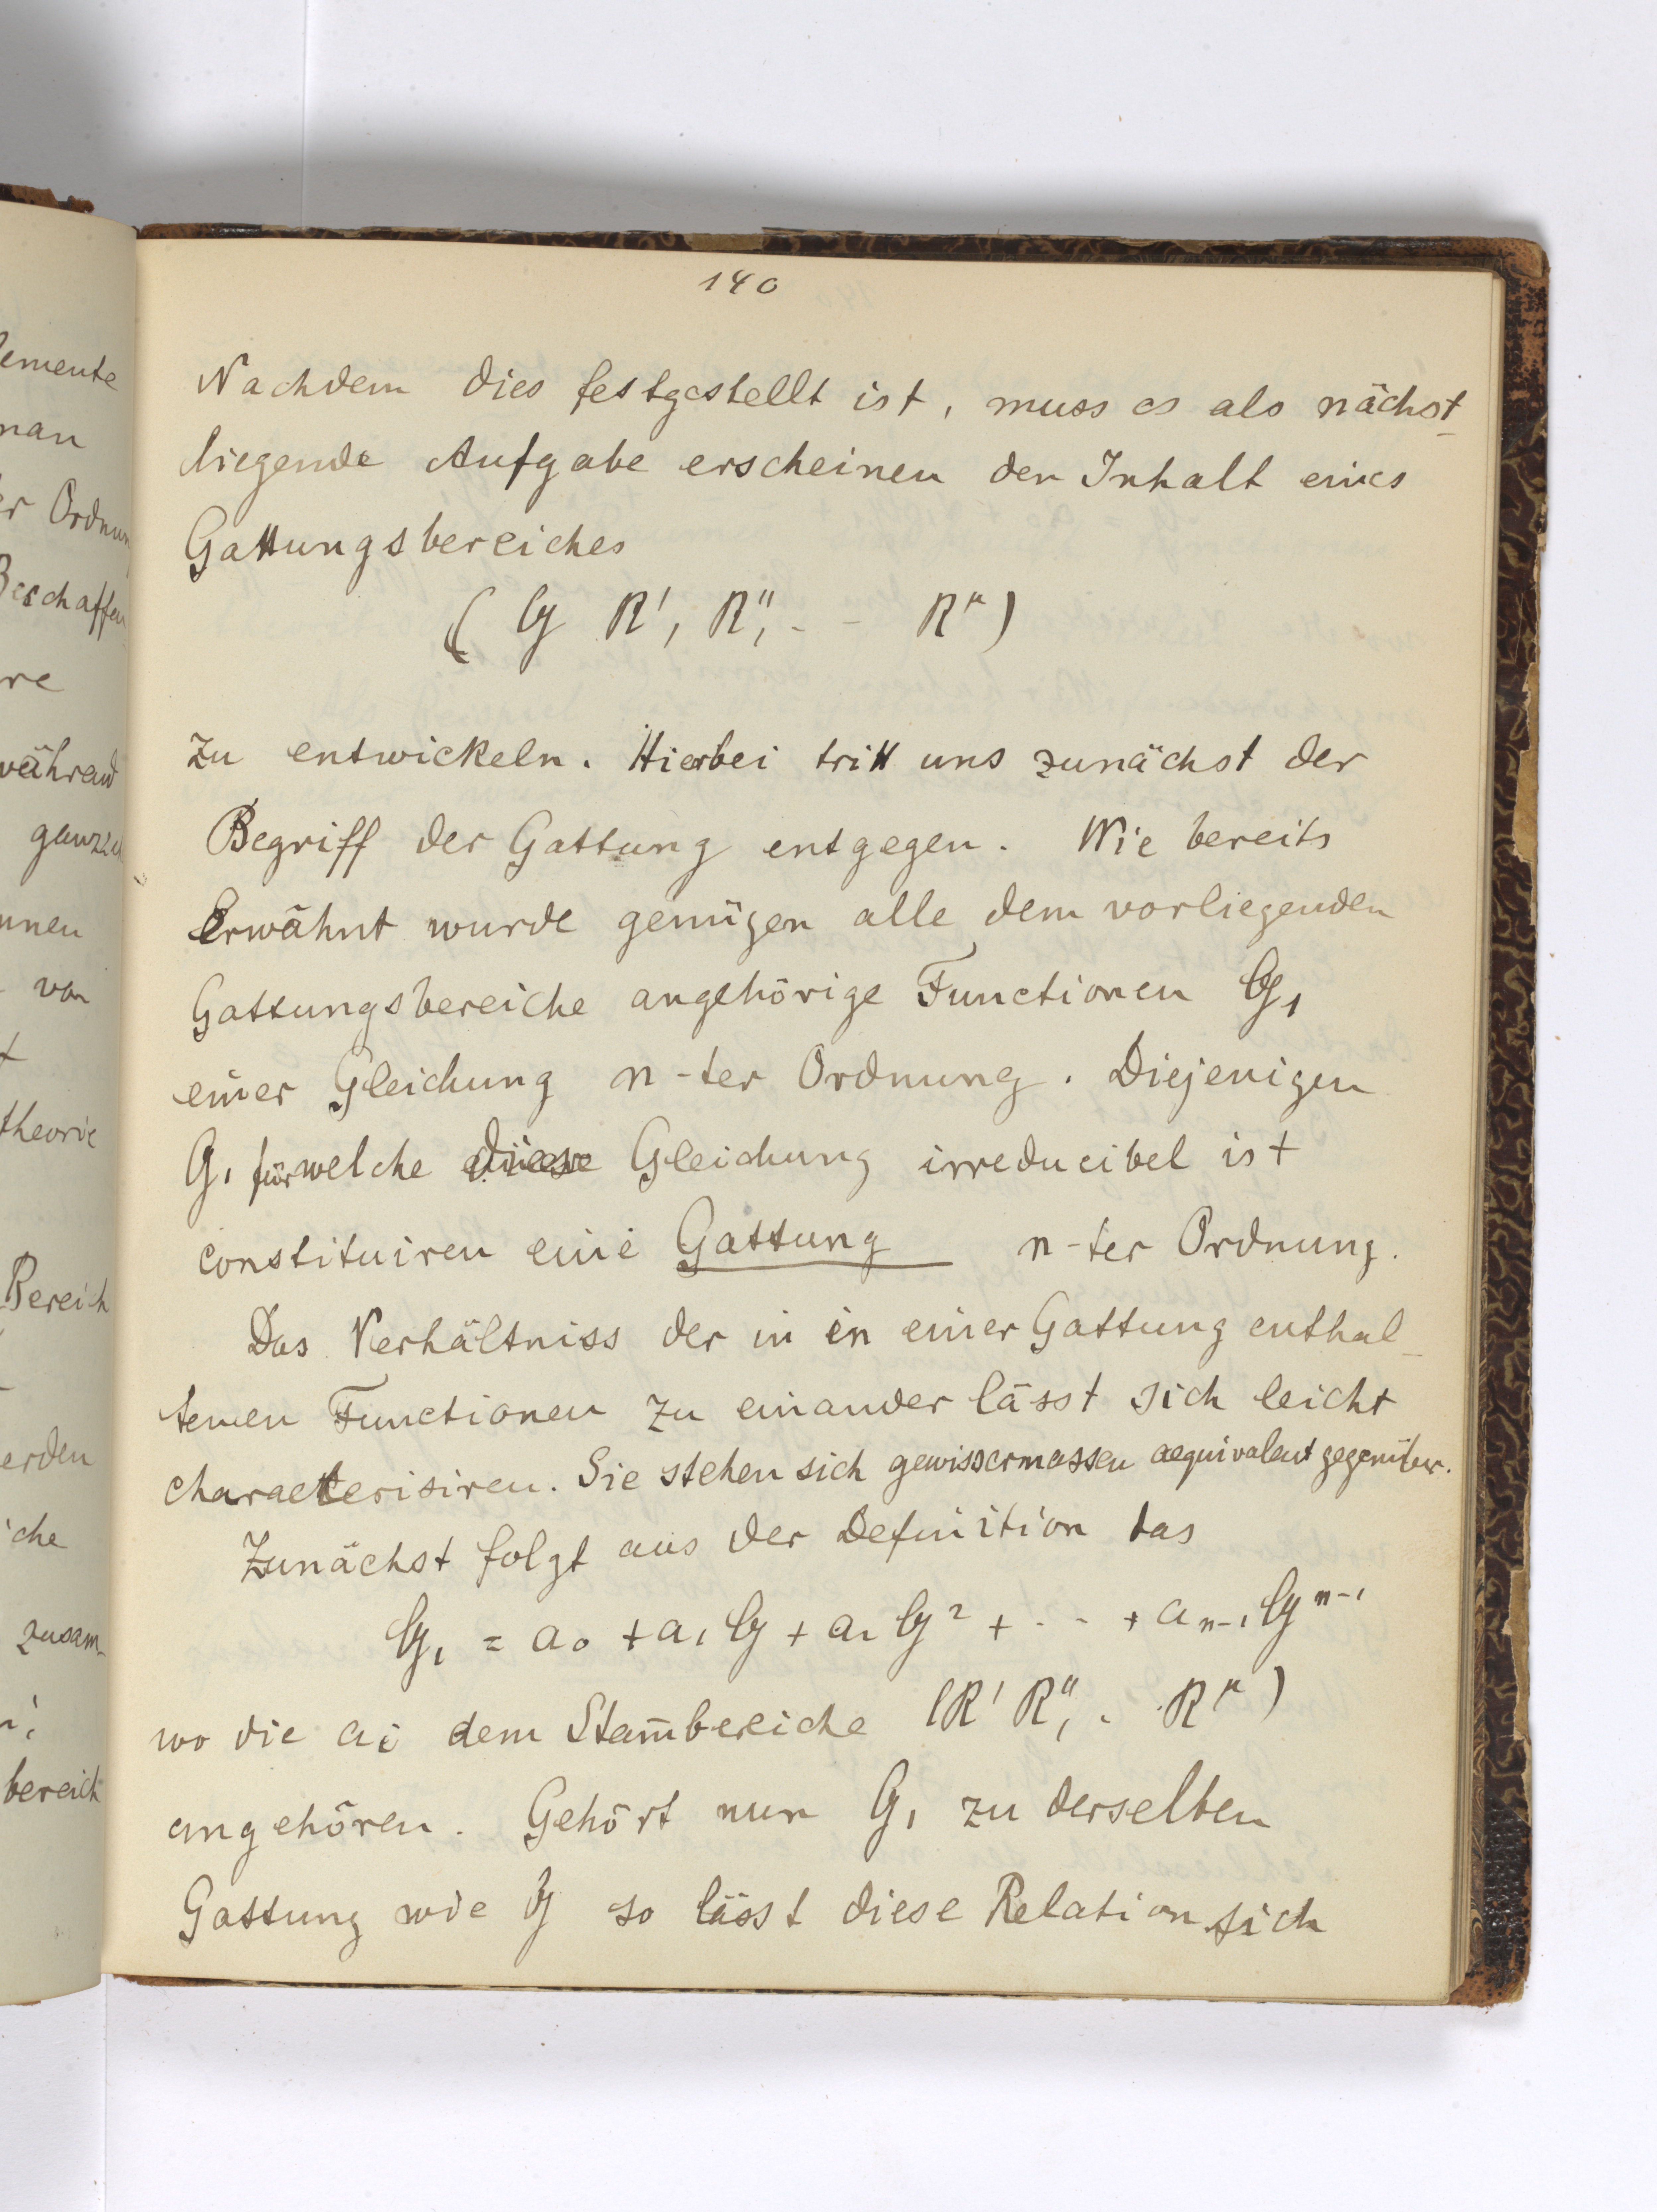 140
Nachdem dies festgestellt ist, muss es als nächst-
liegende Aufgabe erscheinen den Inhalt eines
Gattungsbereiches
( G R', R'', - - R^μ )
zu entwickeln. Hierbei tritt uns zunächst der
Begriff der Gattung entgegen. Wie bereits
Erwähnt wurde genügen alle dem vorliegenden
Gattungsbereiche angehörige Functionen G₁
einer Gleichung n-ter Ordnung. Diejenigen
G₁ für welche diese Gleichung irreducibel ist
constituiren eine Gattung n-ter Ordnung.
Das Verhältniss der in in einer Gattung enthal-
tenen Functionen zu einander lässt sich leicht
characterisiren. Sie stehen sich gewissermassen aequivalent gegenüber.
Zunächst folgt aus der Definition das
G₁ = a₀ + a₁ G + a₂ G² + - - + aₙ₋₁ Gⁿ⁻¹
wo die ai dem Stam̄bereiche (R' R'', - . R^μ )
angehören. Gehört nun G₁ zu derselben
Gattung wie G so lässt diese Relation sich
lemente
man
er Ordnun
Beschaffen
re
während
ganzz
nnen
von
t
theorie
Bereich
erden
iche
zusam
bereich